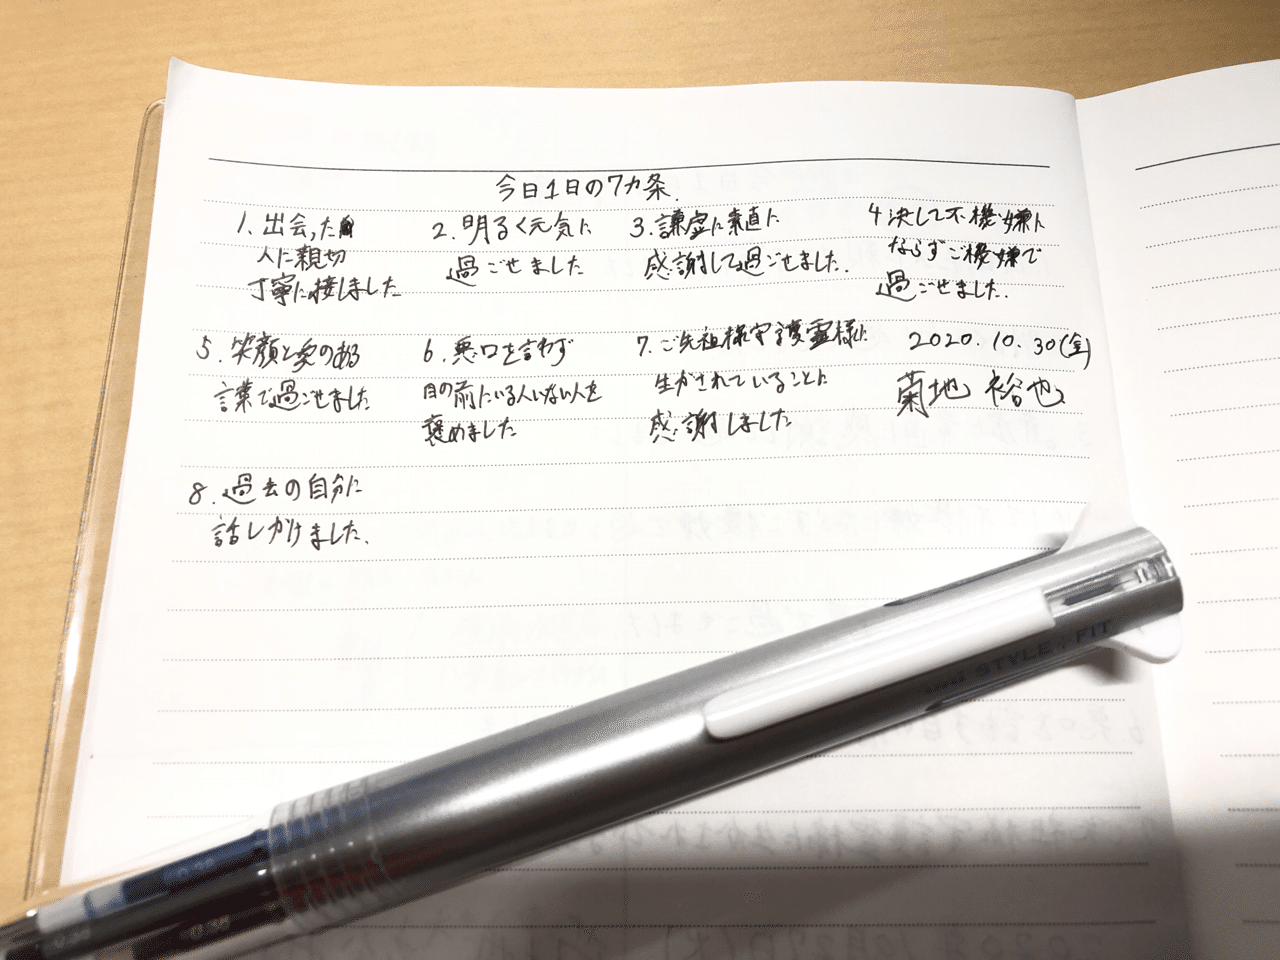 今日1日の7カ条.
1. 出会った
人に親切
丁寧に接しました
2. 明るく元気に
過ごせました
3. 謙虚に素直に
感謝して過ごせました.
4 決して不機嫌に
ならずご機嫌で
過ごせました.
5. 笑顔と愛のある
言葉で過ごせました
6. 悪口を言わず
目の前にいる人いない人を
褒めました
7. ご先祖様守護霊様に
生かされていることに
感謝しました
2020.10.30(金)
菊地 裕也
8. 過去の自分に
話しかけました.
uni STYLE FIT